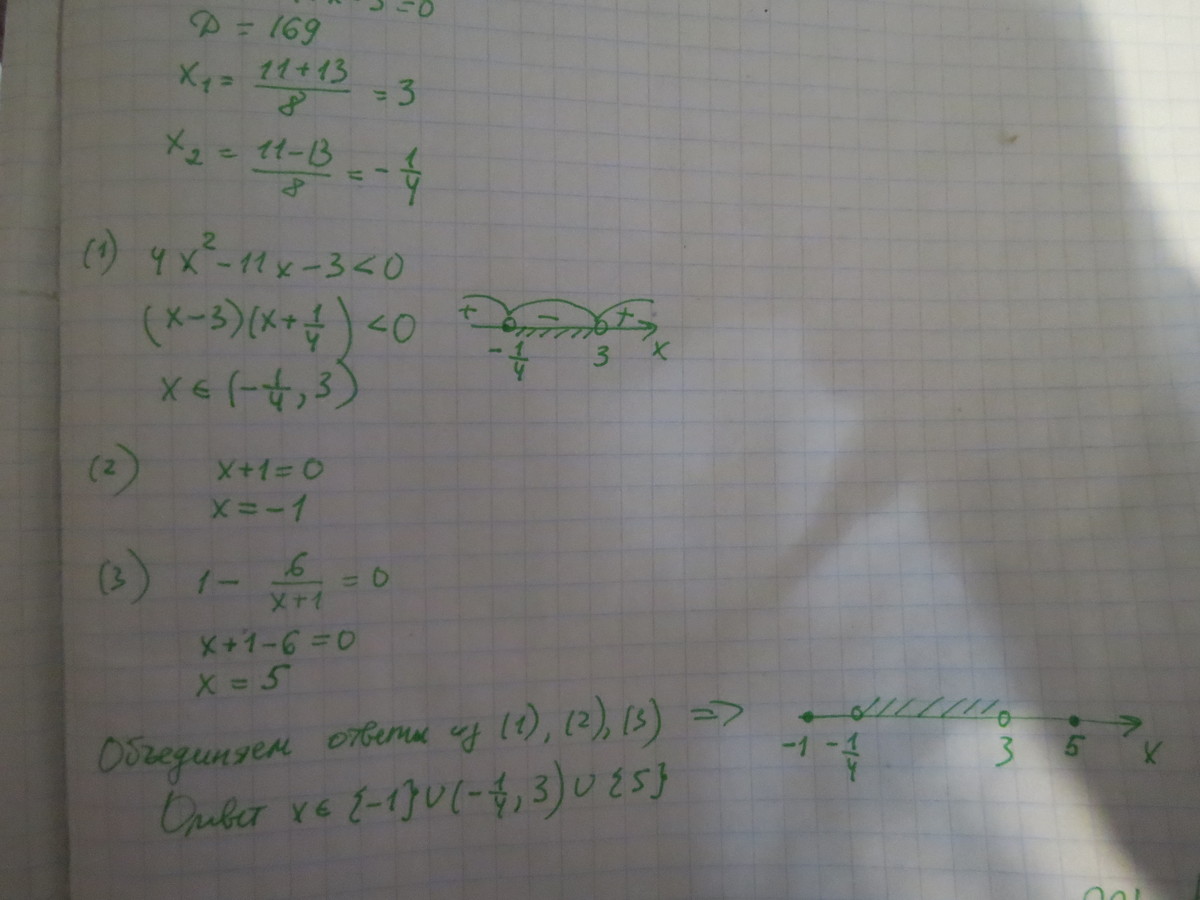 D = 169
x₁ = (11+13)/8 = 3
x₂ = (11-13)/8 = -1/4
(1) 4x² - 11x - 3 < 0
(x-3)(x+1/4) < 0
+ - +
-1/4 3 x
x ∈ (-1/4, 3)
(2) x+1=0
x=-1
(3) 1 - 6/(x+1) = 0
x+1-6=0
x = 5
Объединяем ответы из (1), (2), (3) =>
-1 -1/4 3 5 x
Ответ x ∈ {-1} ∪ (-1/4, 3) ∪ {5}